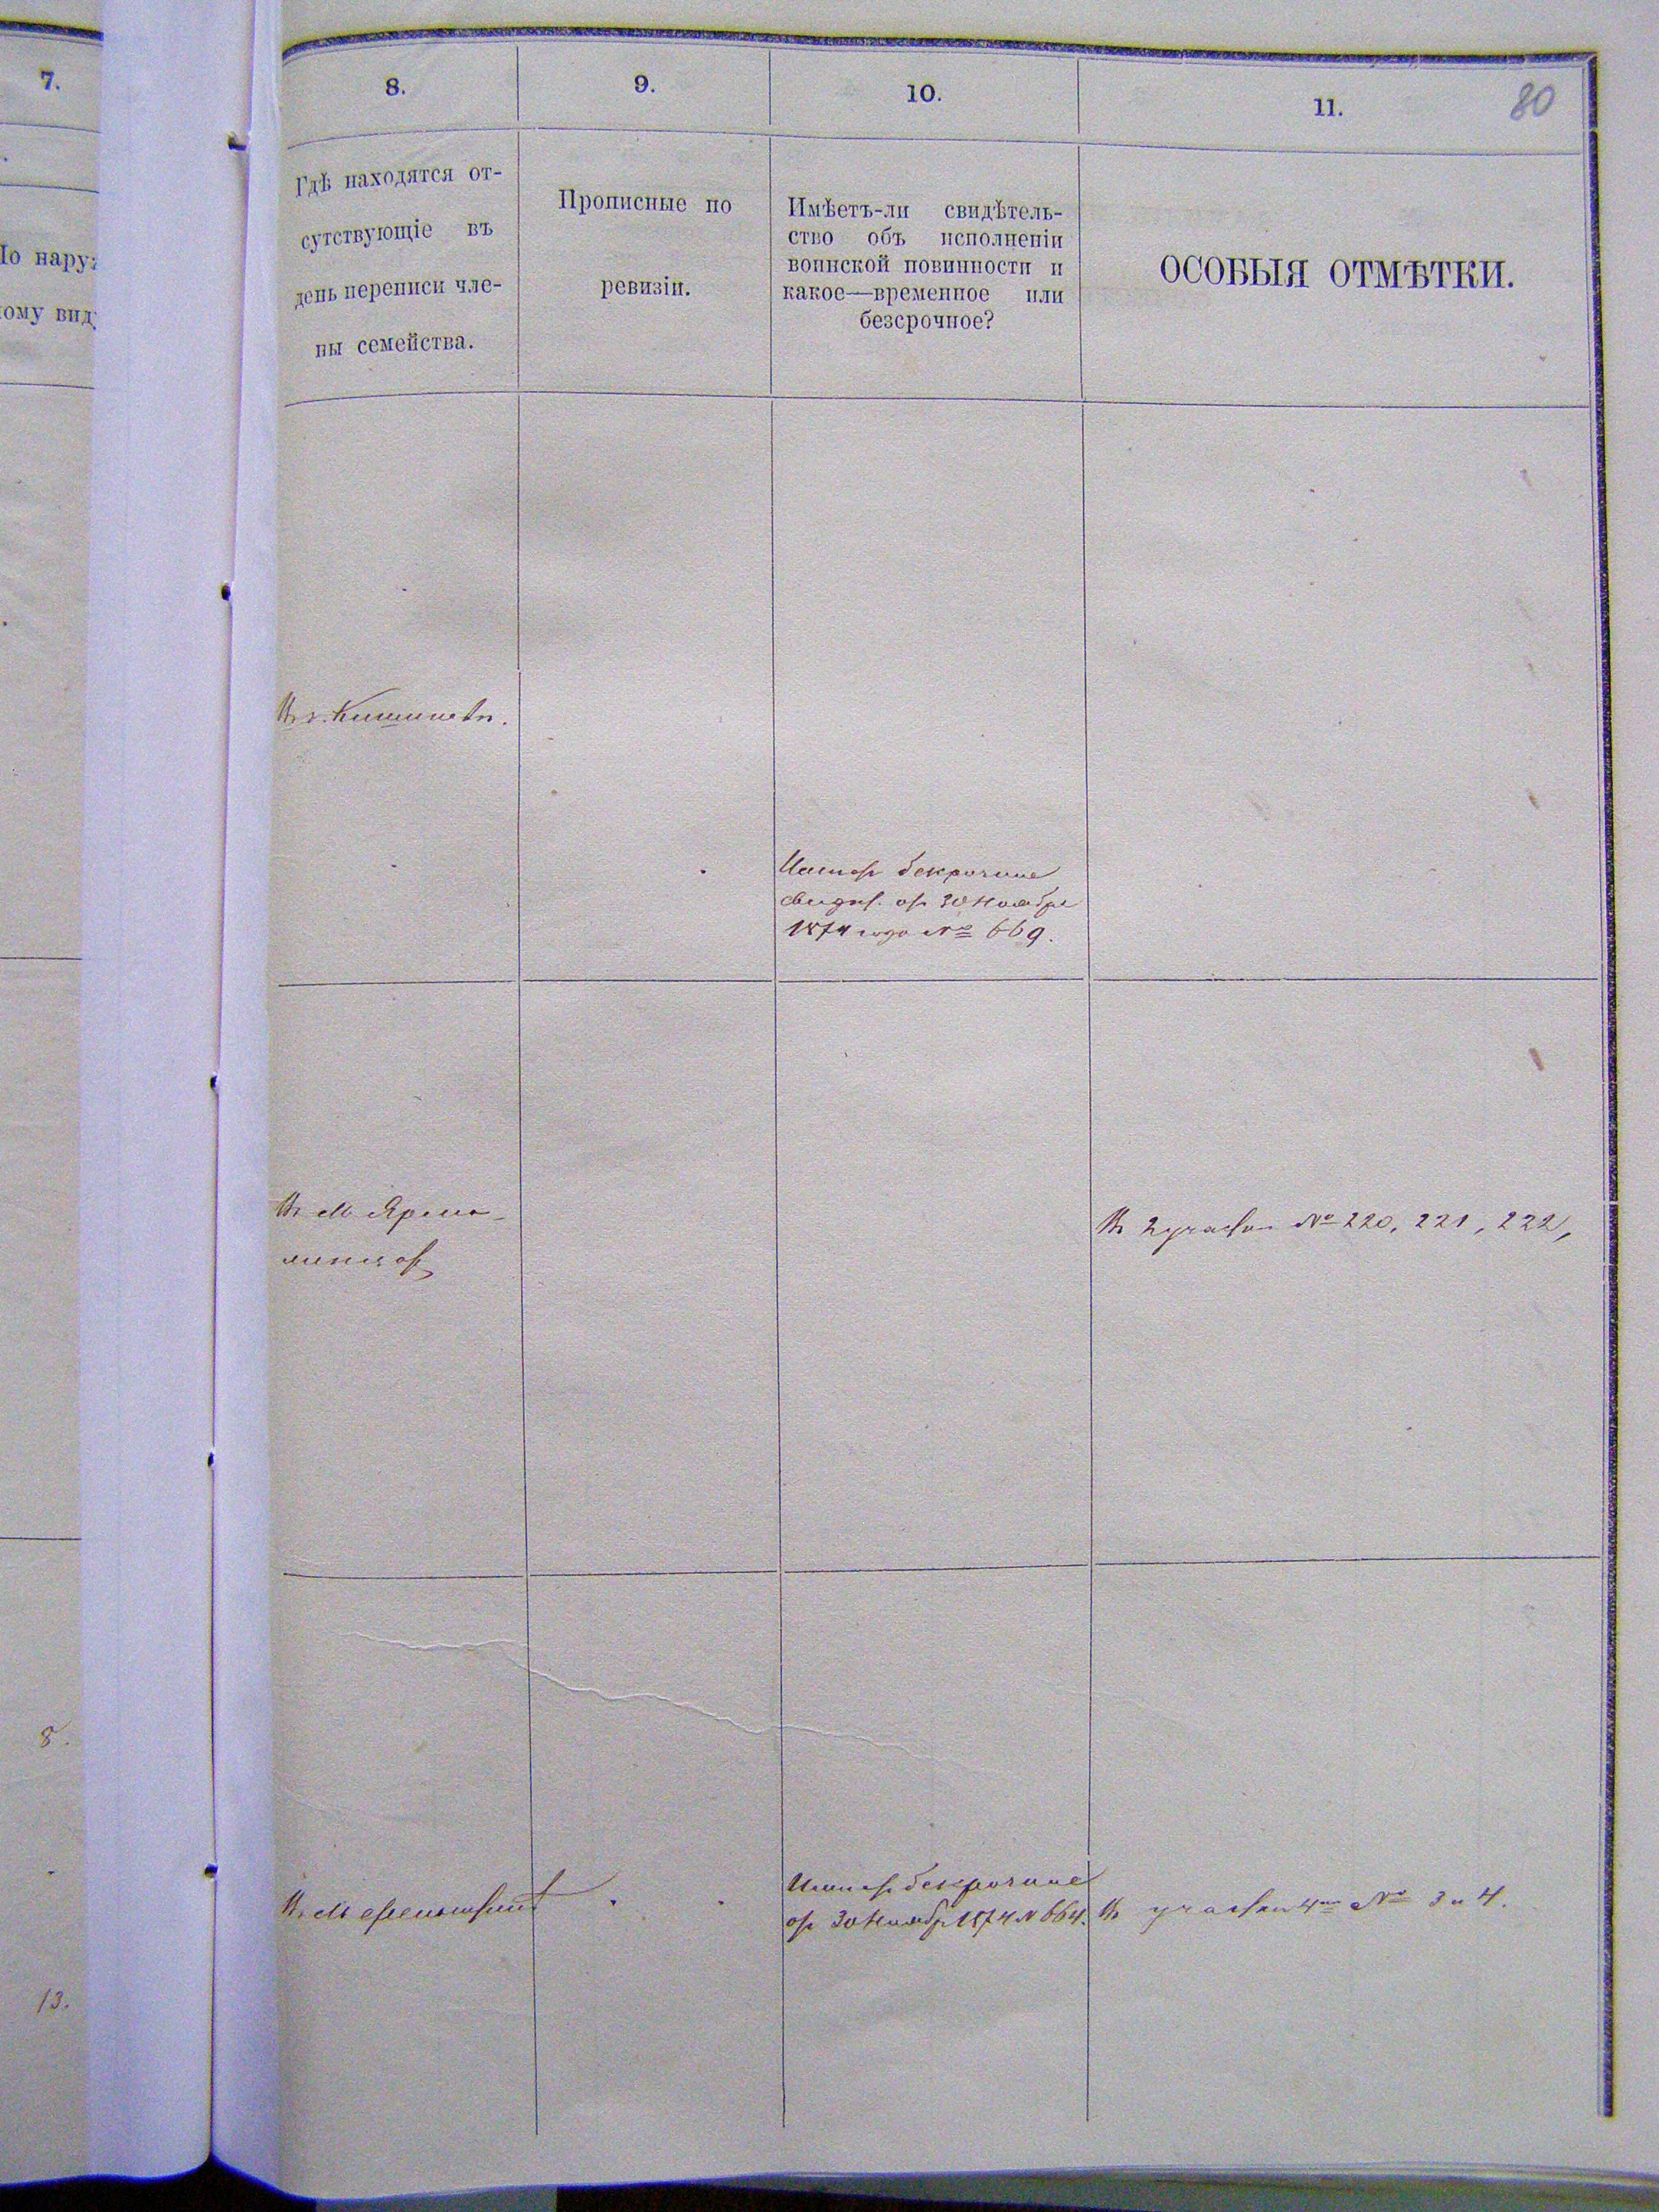 7.
8.
9.
10.
11.
80
Гдѣ находятся от-
сутствующіе въ
день переписи чле-
ны семейства.
Прописные по
ревизіи.
Имѣетъ-ли свидѣтель-
ство объ исполненіи
воинской повинности и
какое—временное или
безсрочное?
ОСОБЫЯ ОТМѢТКИ.
По нару
ому вид
Въ г. Кишиневѣ.
безсрочное
свидѣт. отъ 30 Ноября
1874 года № 669.
Въ М. Ярмо-
линцах
Въ 2 участкѣ № 220, 221, 222,
8.
Въ М.
безсрочное
отъ 30 Ноября 1874 № 664.
Въ участкѣ 4мъ № 3 и 4.
13.